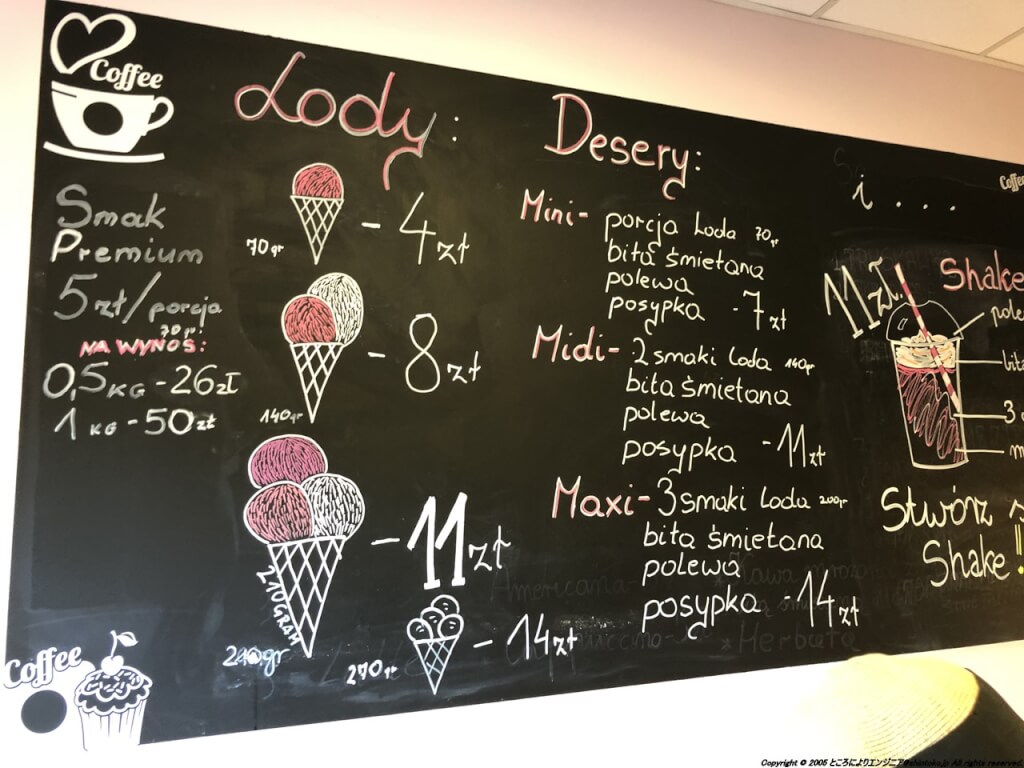 Coffee
Smak
Premium
5zł/porcja
70gr!
NA WYNOS:
0,5 KG - 26zł
1 KG - 50zł
Coffee
Lody:
70gr - 4zł
140gr - 8zł
210GRAM
210gr - 11zł
270gr - 14zł
Desery:
Mini - porcja Loda 70gr
bita śmietana
polewa
posypka - 7zł
Midi - 2 smaki Loda 140gr
bita śmietana
polewa
posypka - 11zł
Maxi - 3 smaki Loda 200gr
bita śmietana
polewa
posypka - 14zł
Americana
*Herbata
i....
Coffee
11zł
Shake
pole
bita
3
m
Stwórz
Shake!
Copyright © 2005 ところによりエンジニア All rights reserved.